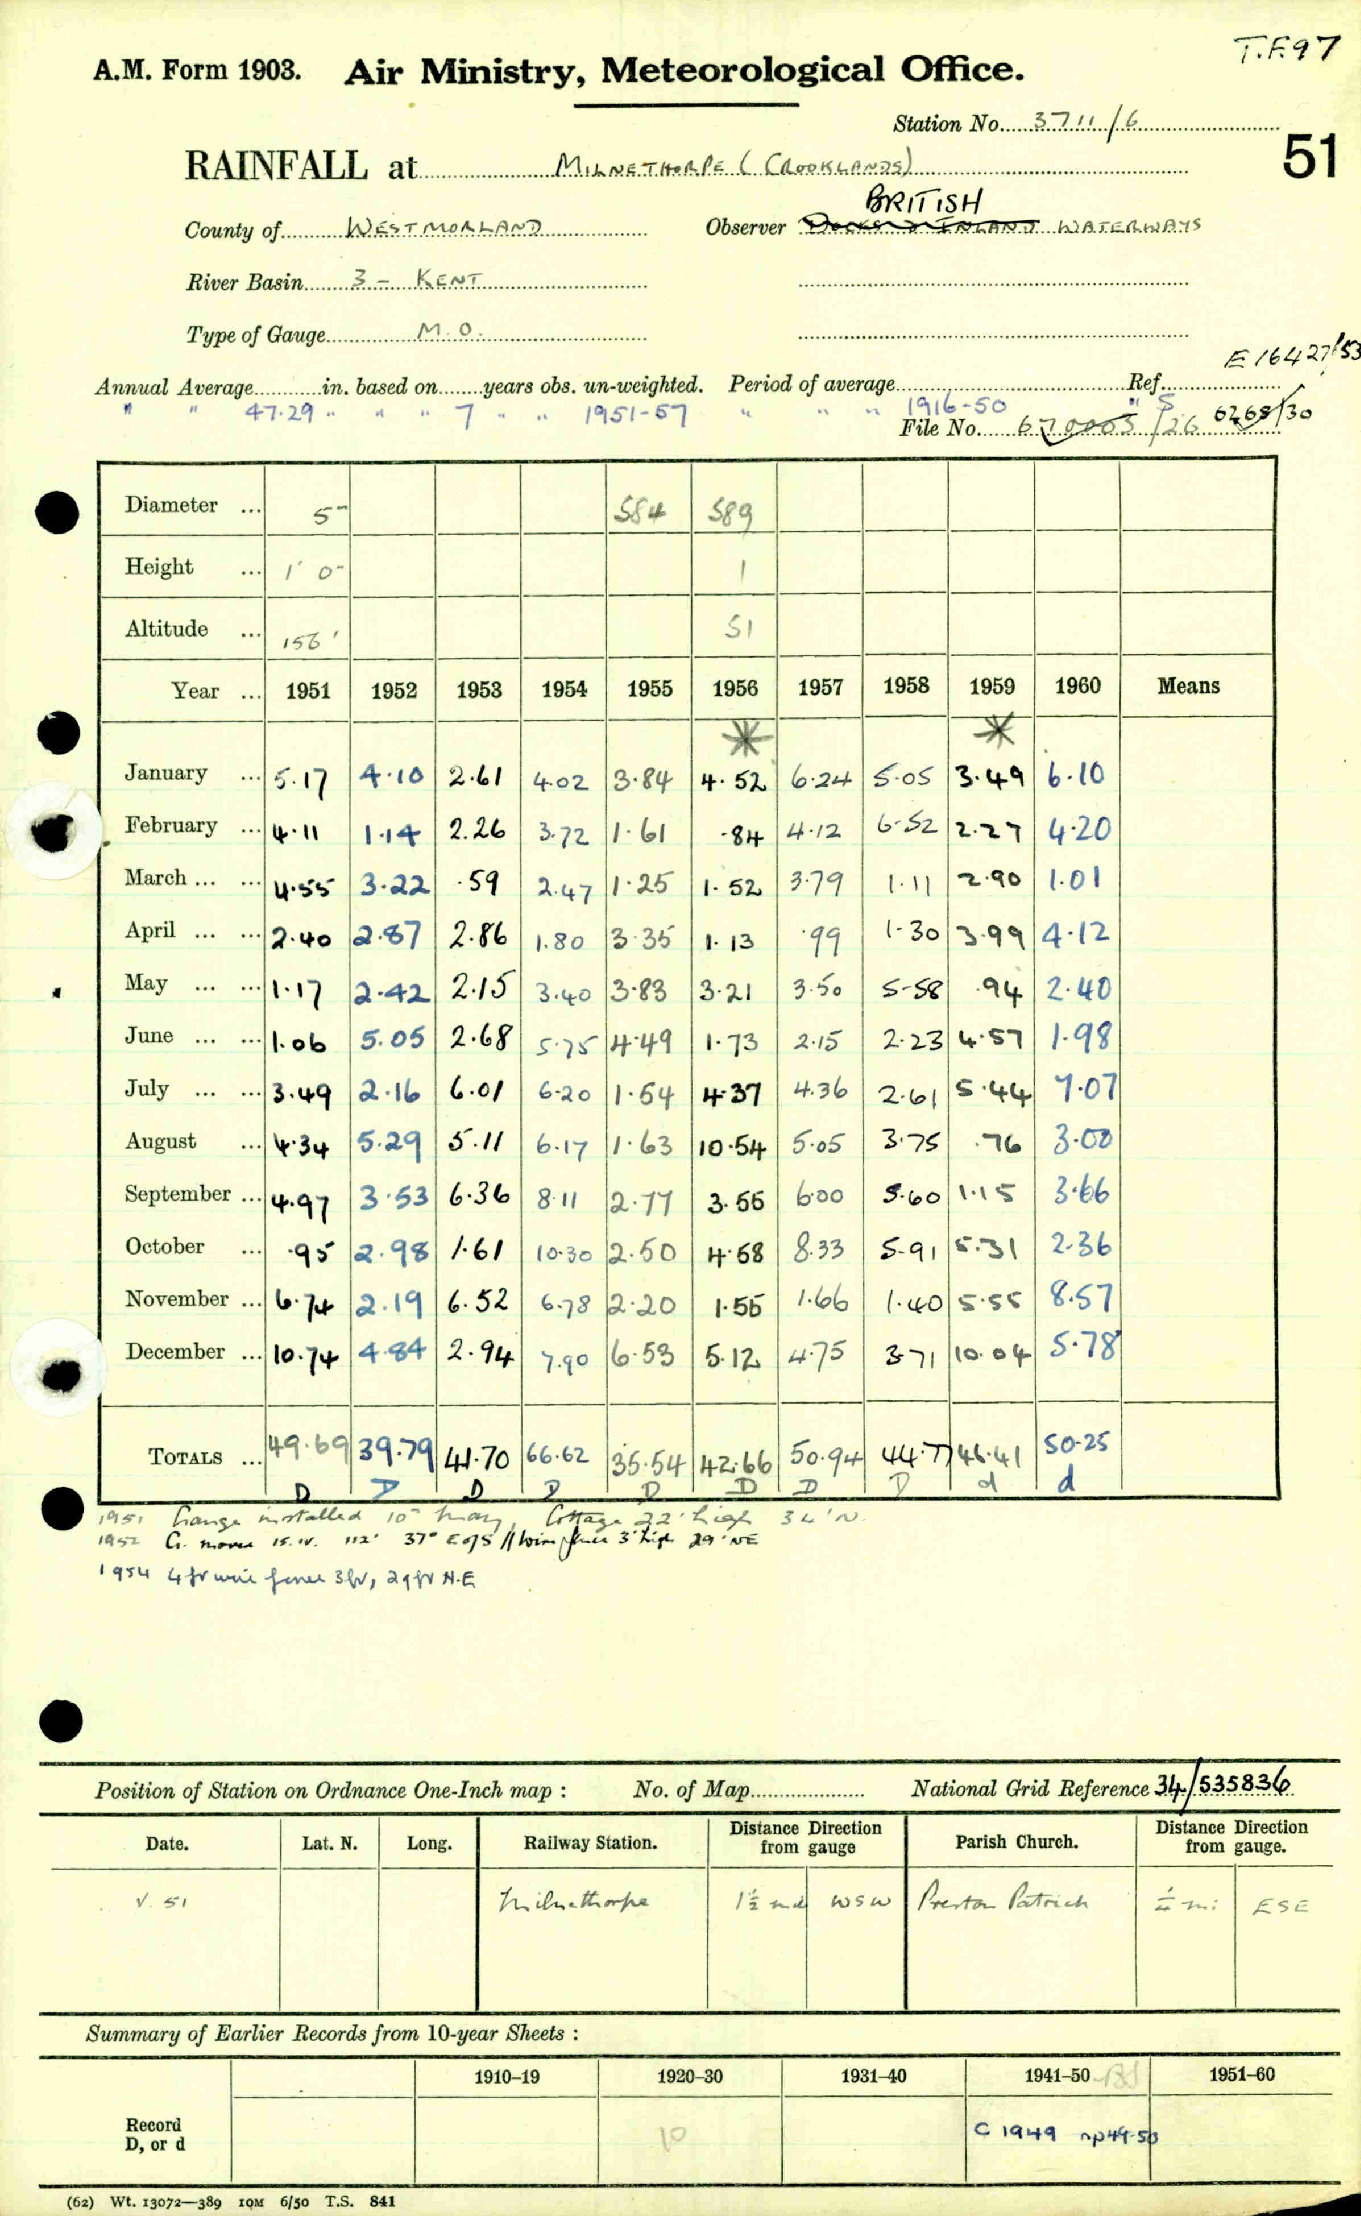 T.F.97
A.M. Form 1903. Air Ministry, Meteorological Office.
Station No. 3711/6
51
RAINFALL at MILNETHORPE (CROOKLANDS)
BRITISH
County of WESTMORLAND Observer DOCKS & INLAND WATERWAYS
River Basin 3 - KENT
Type of Gauge M.O.
E 16427/53
Annual Average in. based on years obs. un-weighted. Period of average Ref.
" " 47.29 " " " 7 " " 1951-57 " " " 1916-50 " S.
File No. 670003/26 6268/30
Diameter ... 5" 584 589
Height ... 1' 0" 1
Altitude ... 156' 51
Year ... 1951 1952 1953 1954 1955 1956 1957 1958 1959 1960 Means
* *
January ... 5.17 4.10 2.61 4.02 3.84 4.52 6.24 5.05 3.49 6.10
February ... 4.11 1.14 2.26 3.72 1.61 .84 4.12 6.52 2.27 4.20
March ... ... 4.55 3.22 .59 2.47 1.25 1.52 3.79 1.11 2.90 1.01
April ... ... 2.40 2.87 2.86 1.80 3.35 1.13 .99 1.30 3.99 4.12
May ... ... 1.17 2.42 2.15 3.40 3.83 3.21 3.50 5.58 .94 2.40
June ... ... 1.06 5.05 2.68 5.75 4.49 1.73 2.15 2.23 4.57 1.98
July ... ... 3.49 2.16 6.01 6.20 1.54 4.37 4.36 2.61 5.44 7.07
August ... 4.34 5.29 5.11 6.17 1.63 10.54 5.05 3.75 .76 3.00
September ... 4.97 3.53 6.36 8.11 2.77 3.55 6.00 5.60 1.15 3.66
October ... .95 2.98 1.61 10.30 2.50 4.58 8.33 5.91 5.31 2.36
November ... 6.74 2.19 6.52 6.78 2.20 1.55 1.66 1.40 5.55 8.57
December ... 10.74 4.84 2.94 7.90 6.53 5.12 4.75 3.71 10.04 5.78
TOTALS ... 49.69 39.79 41.70 66.62 35.54 42.66 50.94 44.77 46.41 50.25
D D D D D D D D d d
1951 Gauge installed 10th May, Cottage 22' high 34' N.
1952 G. moved 15.IV. 112' 37° E of S // Wire fence 3' high 29' NE
1954 4 ft wire fence 3 ft, 29 ft N.E
Position of Station on Ordnance One-Inch map : No. of Map National Grid Reference 34/535836
Date. Lat. N. Long. Railway Station. Distance Direction from gauge Parish Church. Distance Direction from gauge.
V. 51 Milnethorpe 1½ md WSW Preston Patrick ¼ mi ESE
Summary of Earlier Records from 10-year Sheets :
1910–19 1920–30 1931–40 1941–50 1951–60
Record
D, or d 10 C 1949 np 49-50
(62) Wt. 13072—389 10M 6/50 T.S. 841